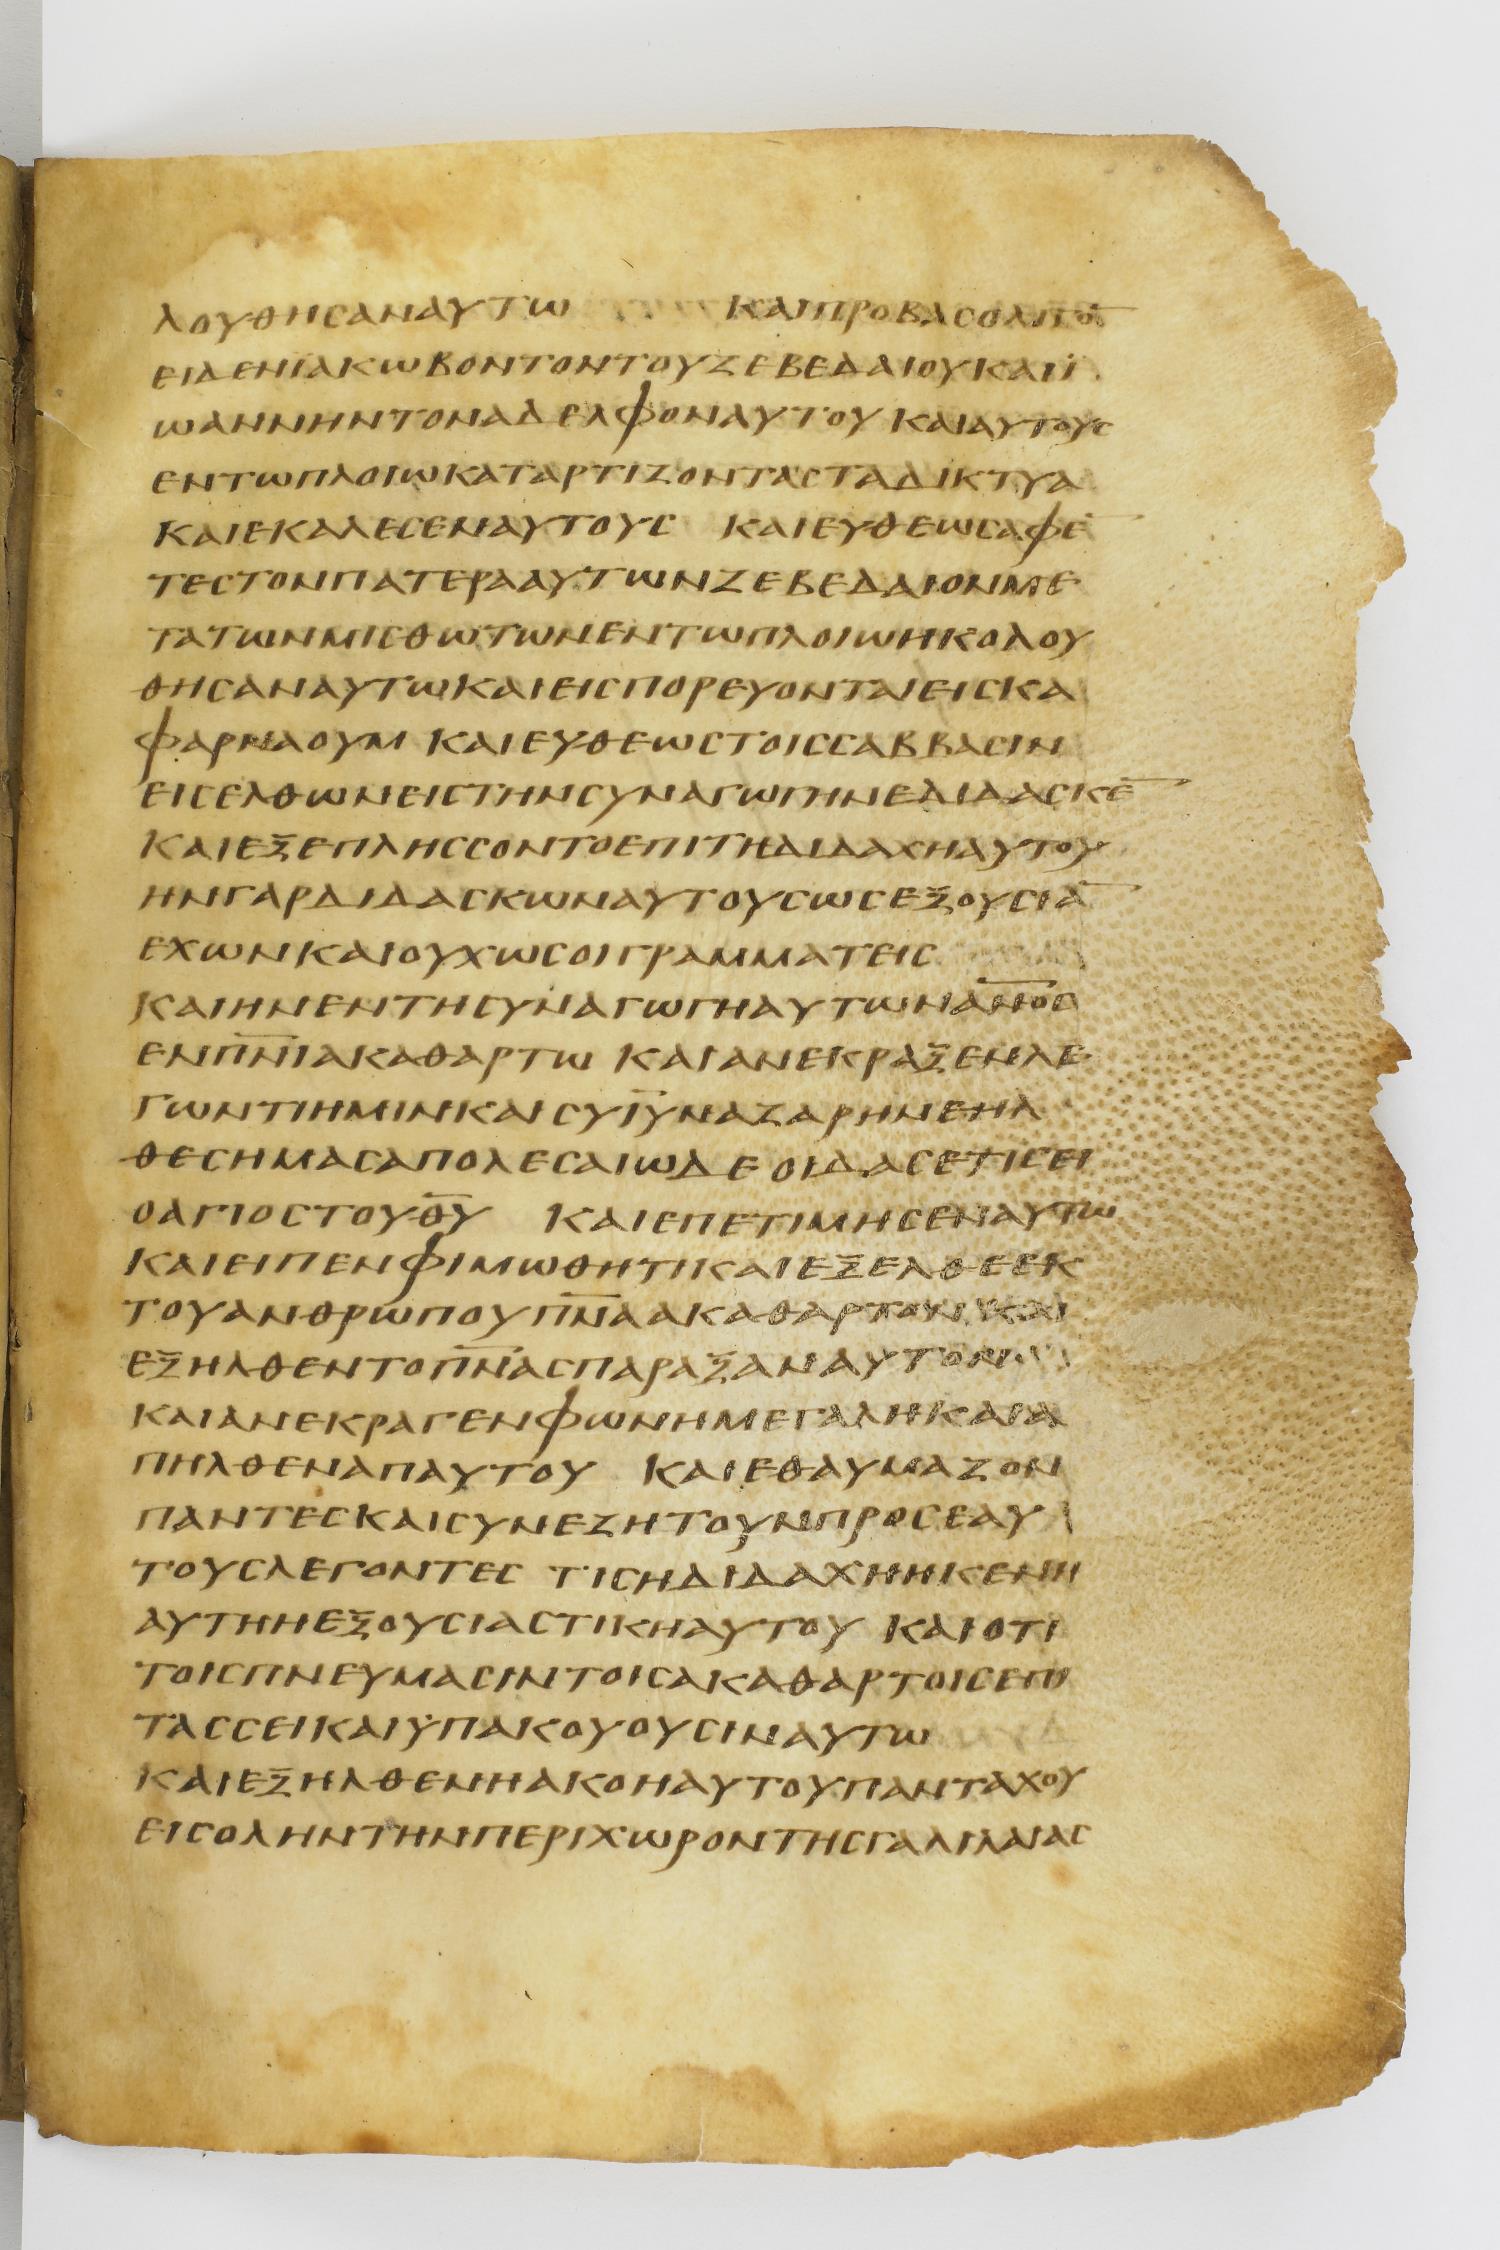 ΛΟΥΘΗϹΑΝΑΥΤω ΚΑΙΠΡΟΒΑϹΟΛΙΓΟ̅
ΕΙΔΕΝΪΑΚωΒΟΝΤΟΝΤΟΥΖΕΒΕΔΑΙΟΥΚΑΙΪ
ωΑΝΝΗΝΤΟΝΑΔΕΛΦΟΝΑΥΤΟΥ ΚΑΙΑΥΤΟΥϹ
ΕΝΤωΠΛΟΙωΚΑΤΑΡΤΙΖΟΝΤΑϹΤΑΔΙΚΤΥΑ
ΚΑΙΕΚΑΛΕϹΕΝΑΥΤΟΥϹ ΚΑΙΕΥΘΕωϹΑΦΕ̅
ΤΕϹΤΟΝΠΑΤΕΡΑΑΥΤωΝΖΕΒΕΔΑΙΟΝΜΕ
ΤΑΤωΝΜΙϹΘωΤωΝΕΝΤωΠΛΟΙωΗΚΟΛΟΥ
ΘΗϹΑΝΑΥΤωΚΑΙΕΙϹΠΟΡΕΥΟΝΤΑΙΕΙϹΚΑ
ΦΑΡΝΑΟΥΜ ΚΑΙΕΥΘΕωϹΤΟΙϹϹΑΒΒΑϹΙΝ
ΕΙϹΕΛΘωΝΕΙϹΤΗΝϹΥΝΑΓωΓΗΝΕΔΙΔΑϹΚΕ̅
ΚΑΙΕΞΕΠΛΗϹϹΟΝΤΟΕΠΙΤΗΔΙΔΑΧΗΑΥΤΟΥ
ΗΝΓΑΡΔΙΔΑϹΚωΝΑΥΤΟΥϹωϹΕΞΟΥϹΙΑ̅
ΕΧωΝΚΑΙΟΥΧωϹΟΙΓΡΑΜΜΑΤΕΙϹ
ΚΑΙΗΝΕΝΤΗϹΥΝΑΓωΓΗΑΥΤωΝΑ̅Ν̅Ο̅Ϲ̅
ΕΝΠ̅Ν̅Ι̅ΑΚΑΘΑΡΤω ΚΑΙΑΝΕΚΡΑΞΕΝΛΕ
ΓωΝΤΙΗΜΙΝΚΑΙϹΥΙ̅Υ̅ΝΑΖΑΡΗΝΕΗΛ
ΘΕϹΗΜΑϹΑΠΟΛΕϹΑΙωΔΕ ΟΙΔΑϹΕΤΙϹΕΙ
ΟΑΓΙΟϹΤΟΥΘ̅Υ̅ ΚΑΙΕΠΕΤΙΜΗϹΕΝΑΥΤω
ΚΑΙΕΙΠΕΝΦΙΜωΘΗΤΙΚΑΙΕΞΕΛΘΕΕΚ
ΤΟΥΑΝΘΡωΠΟΥΠ̅Ν̅Α̅ΑΚΑΘΑΡΤΟΝ ΚΑΙ
ΕΞΗΛΘΕΝΤΟΠ̅Ν̅Α̅ϹΠΑΡΑΞΑΝΑΥΤΟΝ
ΚΑΙΑΝΕΚΡΑΓΕΝΦωΝΗΜΕΓΑΛΗΚΑΙΑ
ΠΗΛΘΕΝΑΠΑΥΤΟΥ ΚΑΙΕΘΑΥΜΑΖΟΝ
ΠΑΝΤΕϹΚΑΙϹΥΝΕΖΗΤΟΥΝΠΡΟϹΕΑΥ
ΤΟΥϹΛΕΓΟΝΤΕϹ ΤΙϹΗΔΙΔΑΧΗΗΚΕΝΗ
ΑΥΤΗΗΕΞΟΥϹΙΑϹΤΙΚΗΑΥΤΟΥ ΚΑΙΟΤΙ
ΤΟΙϹΠΝΕΥΜΑϹΙΝΤΟΙϹΑΚΑΘΑΡΤΟΙϹΕΠΙ
ΤΑϹϹΕΙΚΑΙΫΠΑΚΟΥΟΥϹΙΝΑΥΤω
ΚΑΙΕΞΗΛΘΕΝΗΑΚΟΗΑΥΤΟΥΠΑΝΤΑΧΟΥ
ΕΙϹΟΛΗΝΤΗΝΠΕΡΙΧωΡΟΝΤΗϹΓΑΛΙΛΑΙΑϹ